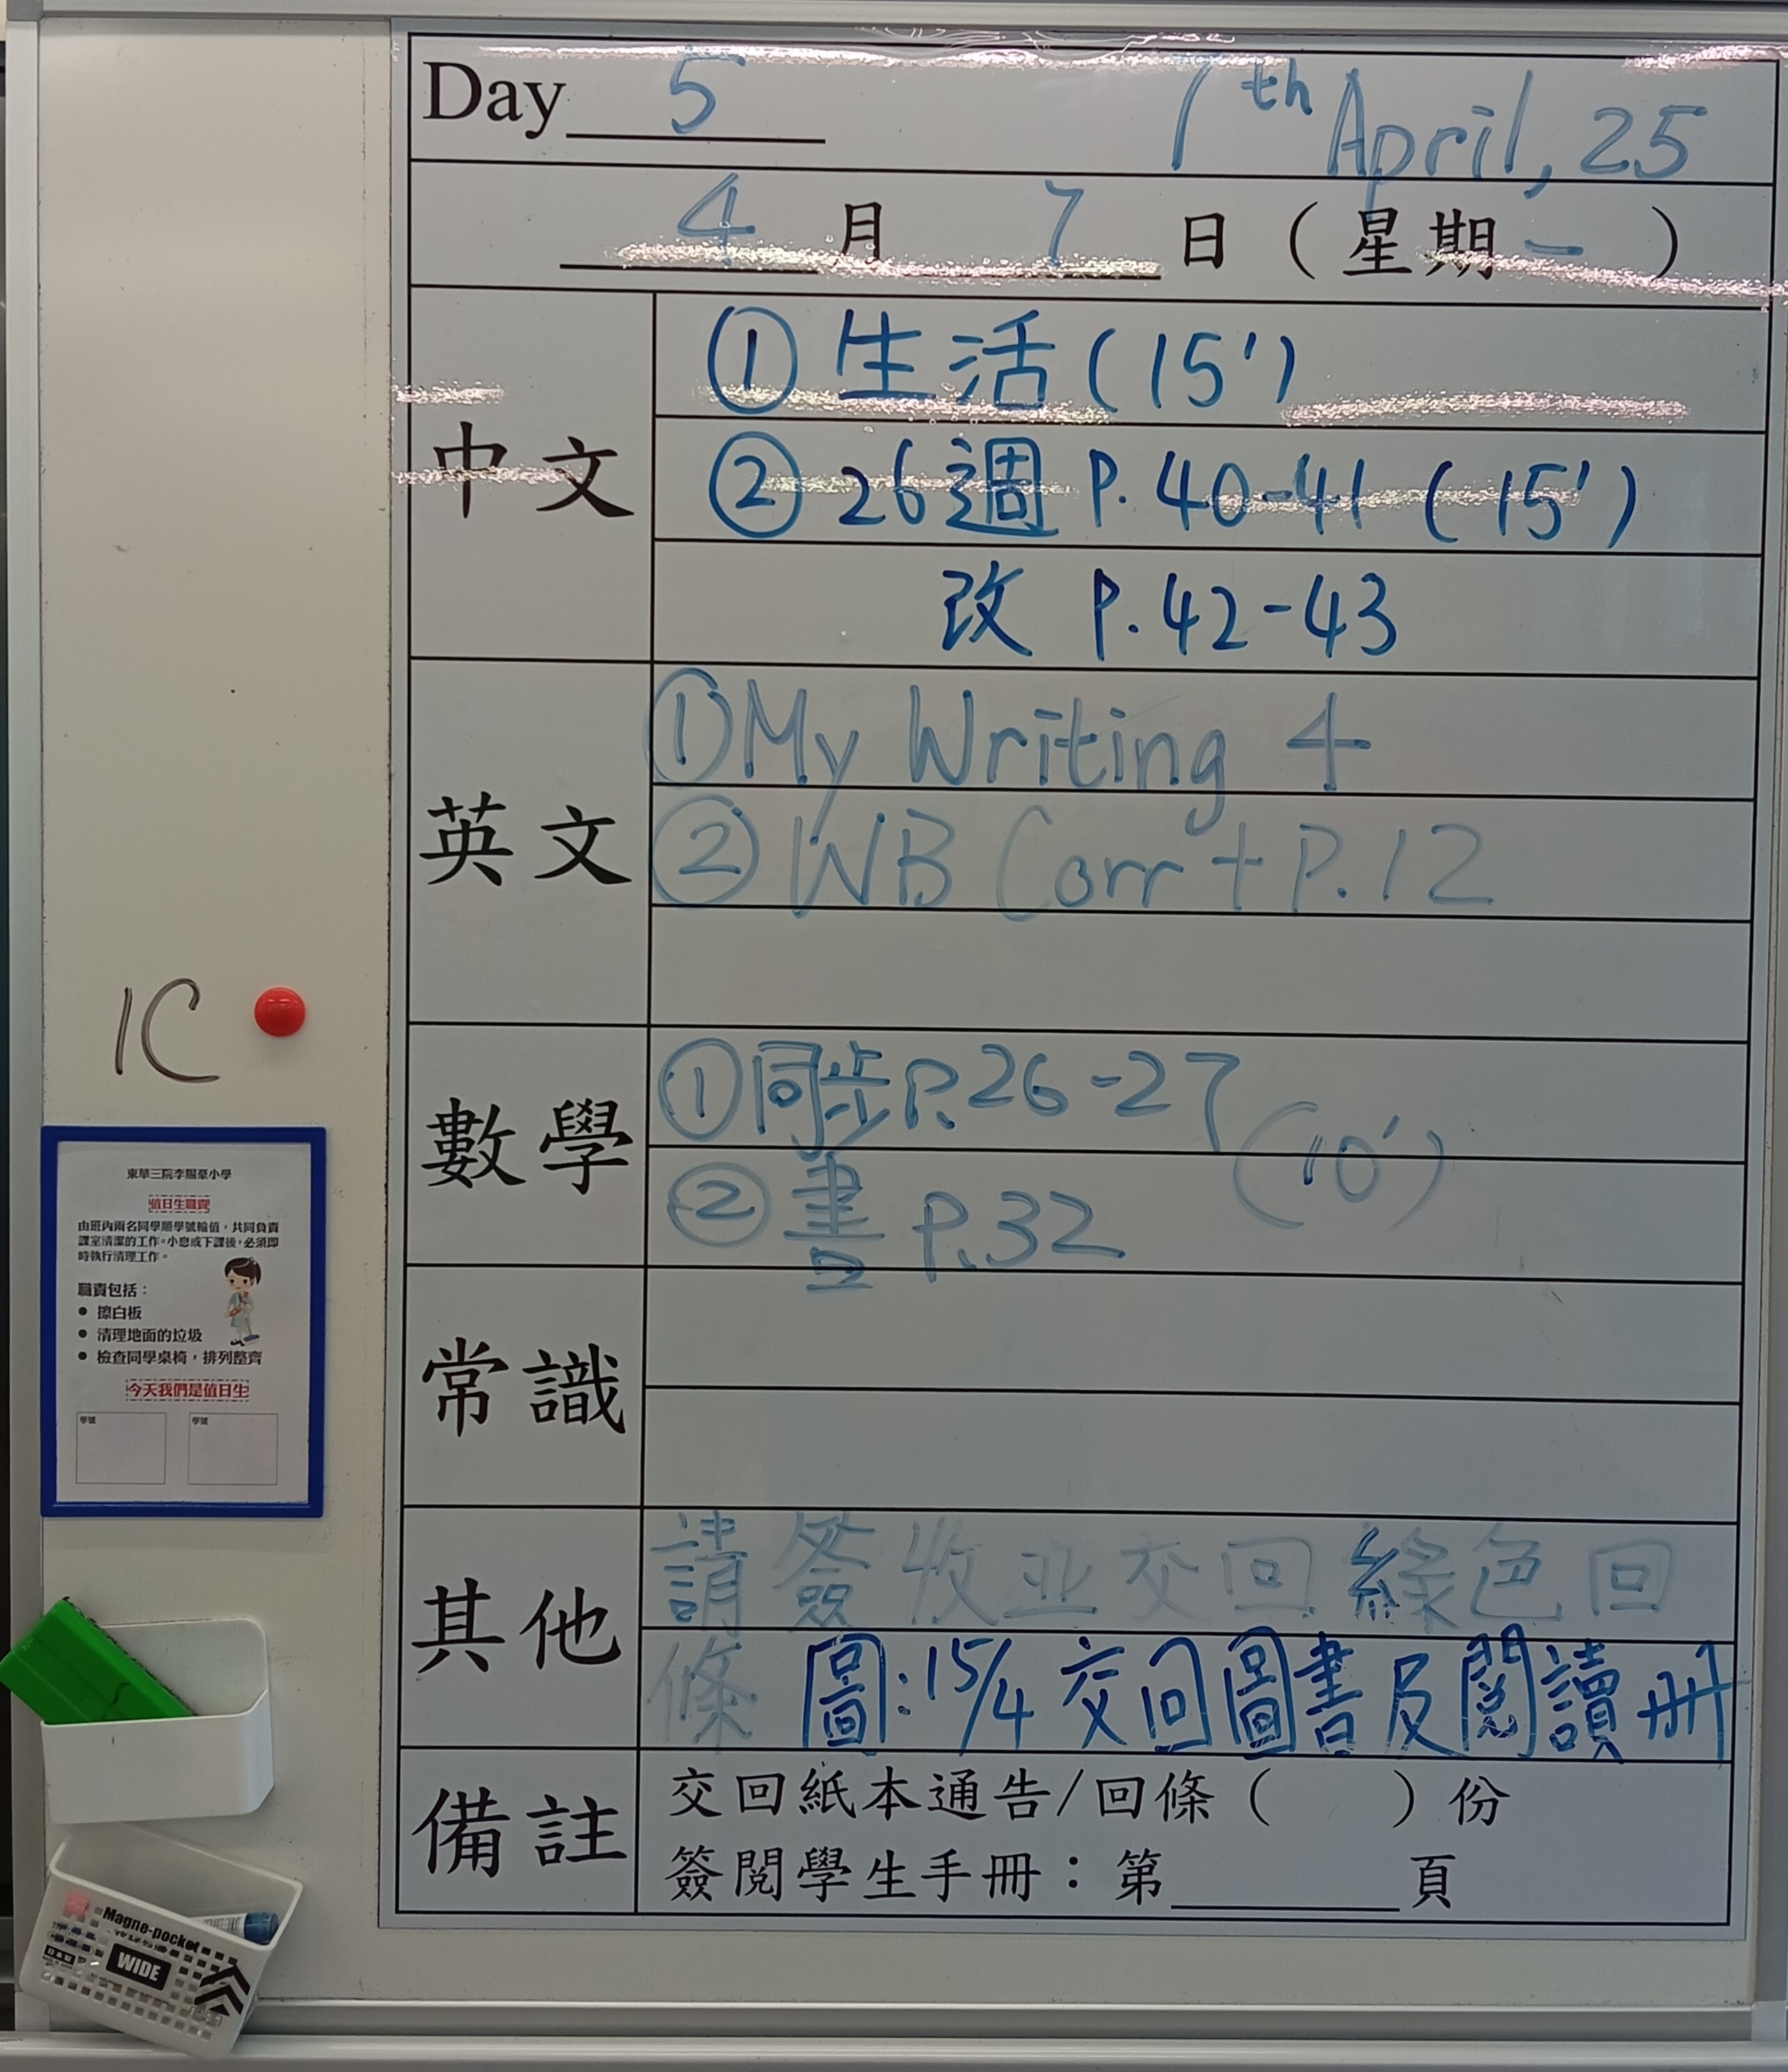 Day 5 7th April, 25
4 月 7 日 ( 星期 一 )
中文
① 生活 ( 15' )
② 26週 P. 40-41 ( 15' )
改 P. 42-43
英文
① My Writing 4
② WB Corr + P. 12
數學
① 同步 P. 26-27
(10')
② 畫 P. 32
常識
其他
請簽收並交回綠色回
條 圖:15/4 交回圖書及閱讀冊
備註
交回紙本通告/回條 ( ) 份
簽閱學生手冊:第______頁
1C
東華三院李賜豪小學
值日生職責
由班內兩名同學順學號輪值,共同負責
課室清潔的工作。小息或下課後,必須即
時執行清理工作。
職責包括:
● 擦白板
● 清理地面的垃圾
● 檢查同學桌椅,排列整齊
今天我們是值日生
學號 學號
Magne-pocket
WIDE